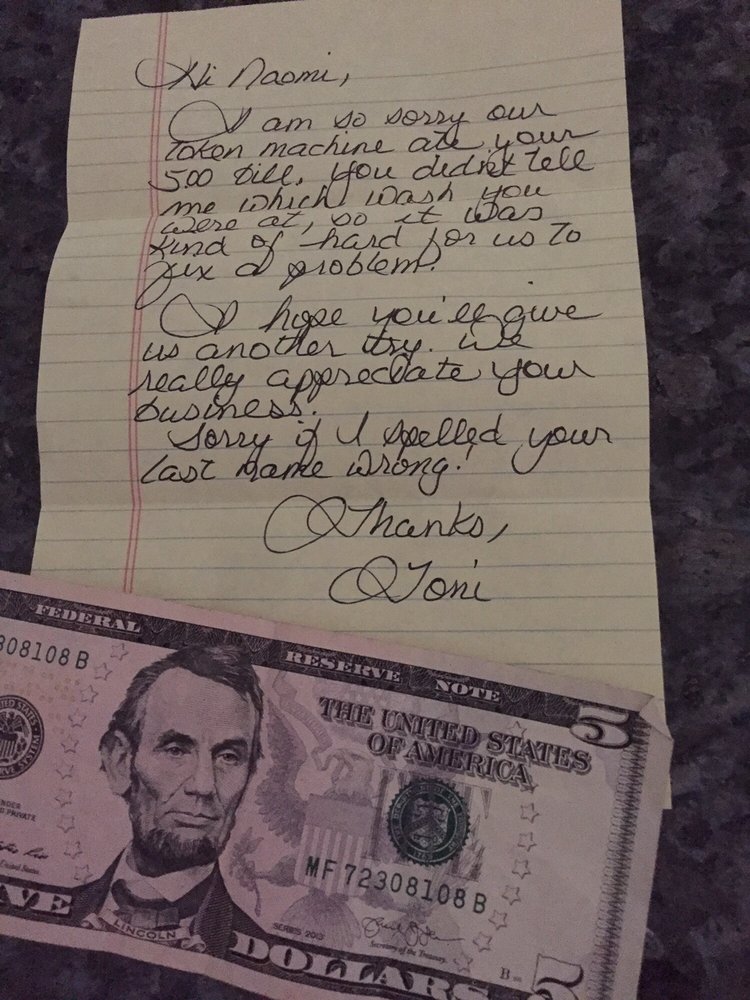 Hi Naomi,
I am so sorry our
token machine ate your
5.00 bill. You didn't tell
me which wash you
were at, so it was
kind of hard for us to
fix a problem.
I hope you'll give
us another try. We
really appreciate your
business.
Sorry if I spelled your
last name wrong!
Thanks,
Toni
FEDERAL RESERVE NOTE
308108 B
5
THE UNITED STATES
OF AMERICA
MF 72308108 B
SERIES 2013
Secretary of the Treasury.
LINCOLN
VE DOLLARS
H
5